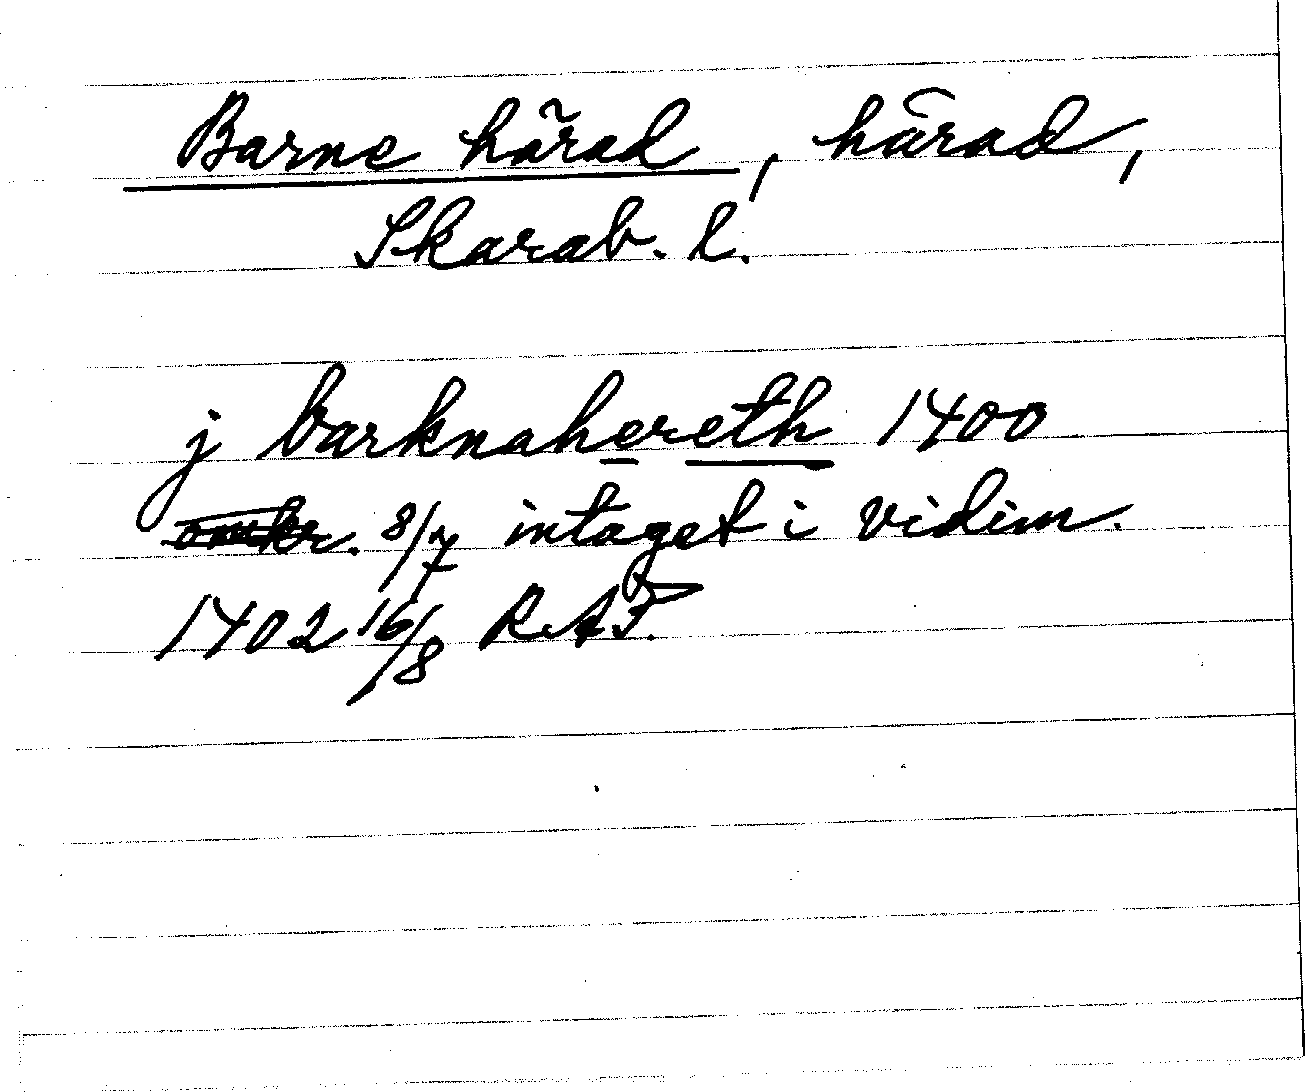 Barne härad, härad,
Skarab. l.
j barknahereth 1400
omkr. 8/7 intaget i vidim.
1402 16/8 RAP.